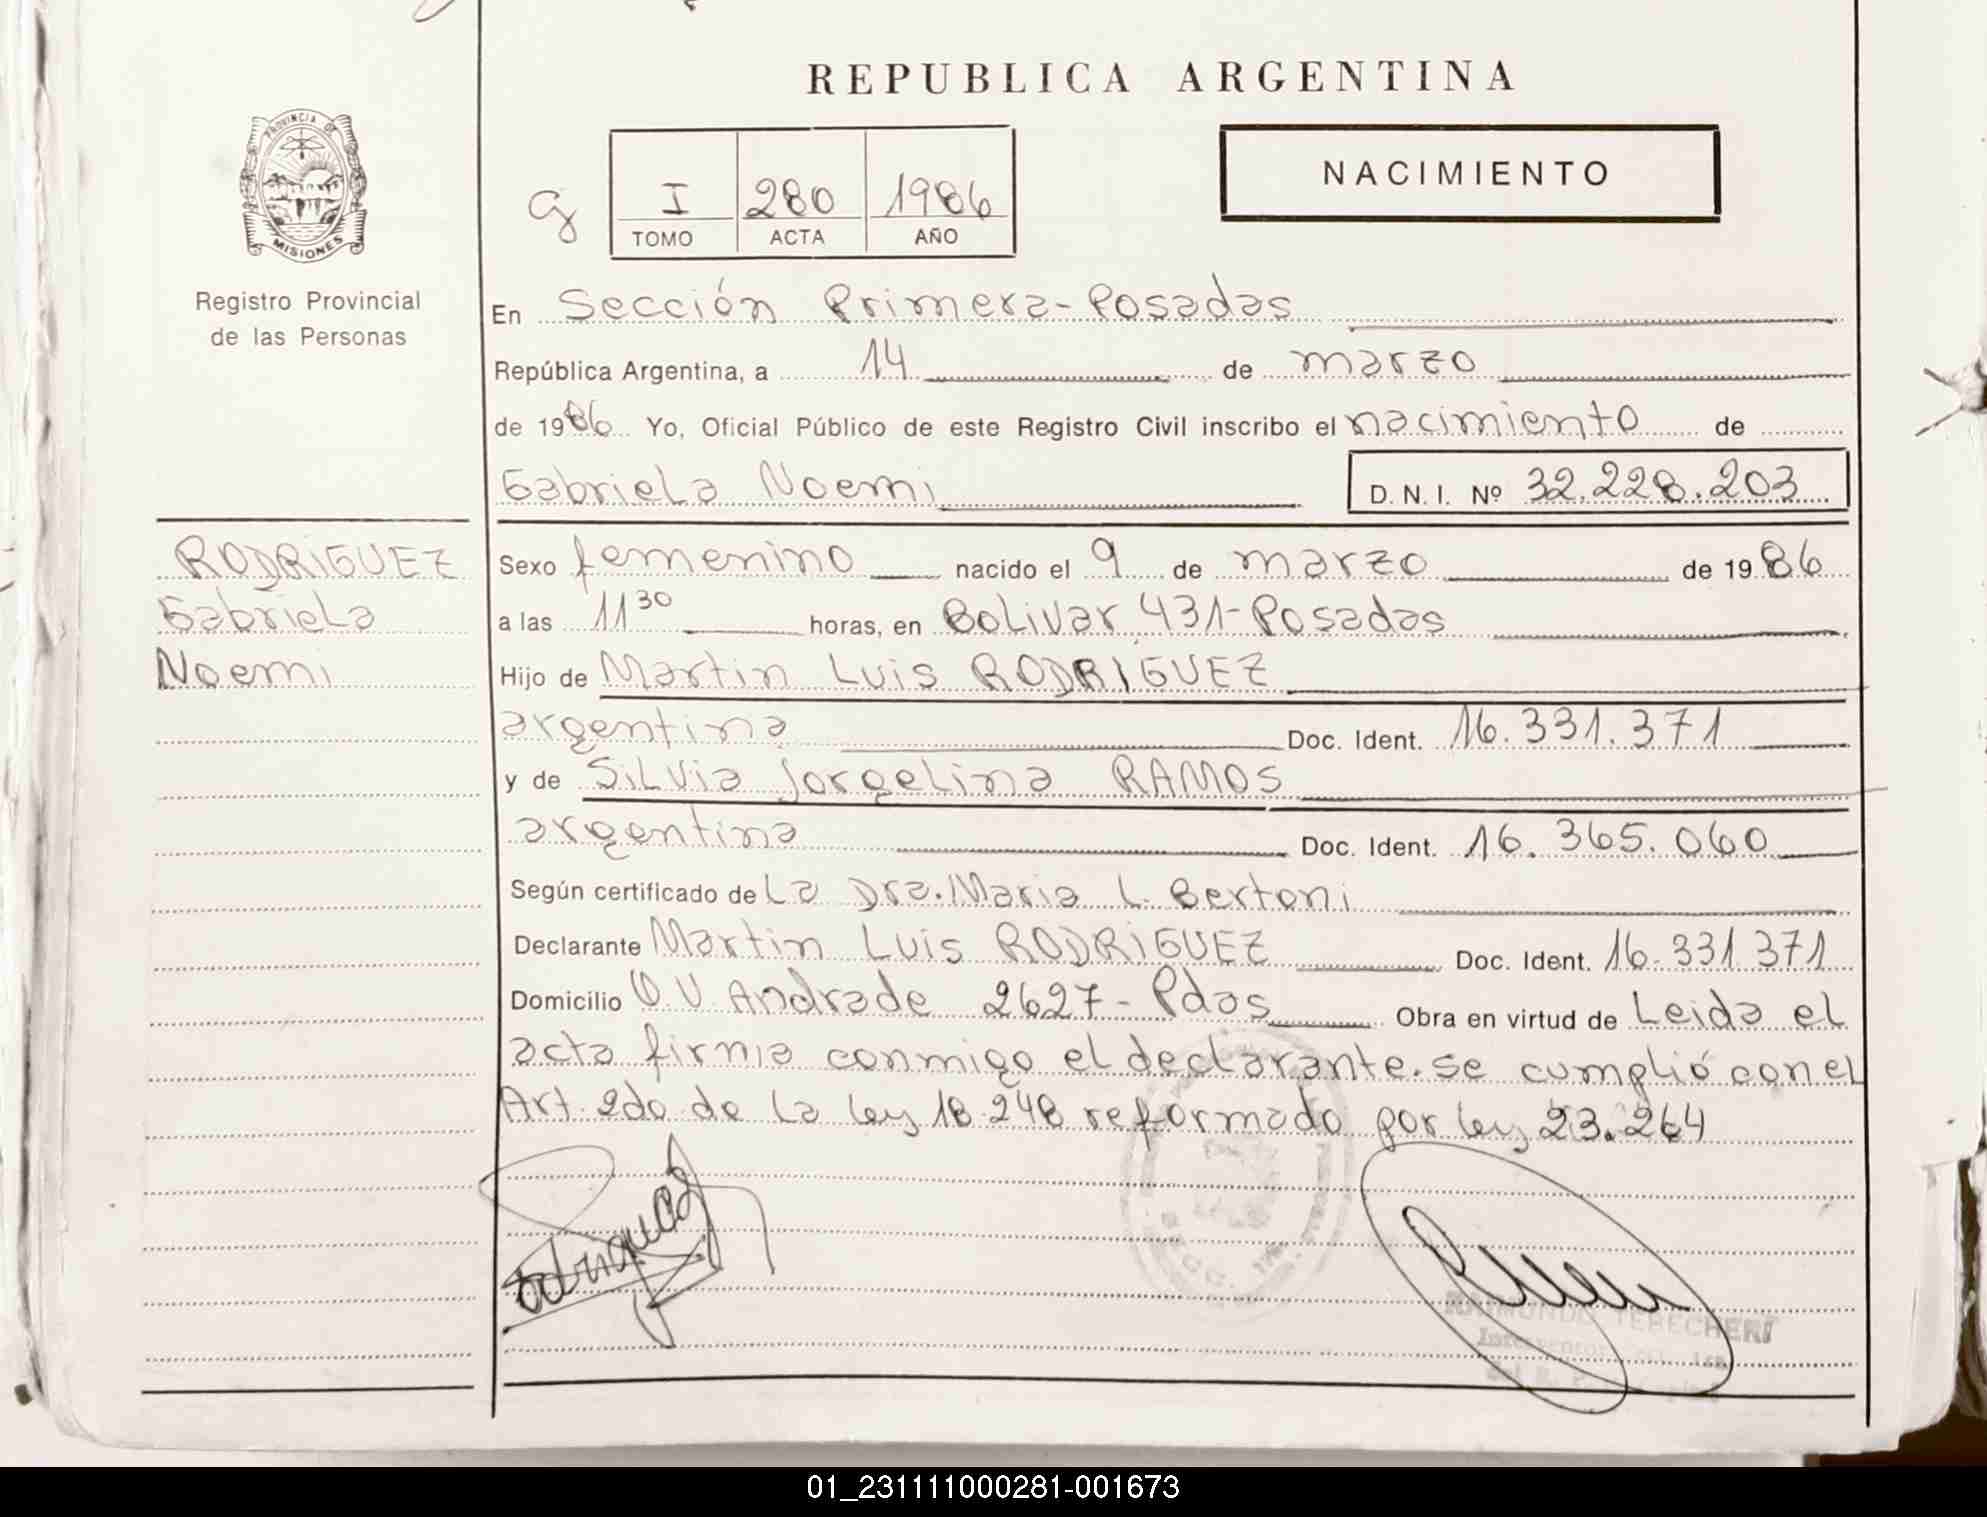 REPUBLICA ARGENTINA
PROVINCIA DE
MISIONES
Registro Provincial
de las Personas
I 280 1986
TOMO ACTA AÑO
NACIMIENTO
En Sección Primera-Posadas
República Argentina, a 14 de marzo
de 1986 Yo, Oficial Público de este Registro Civil inscribo el nacimiento de
Gabriela Noemi D.N.I. Nº 32.228.203
RODRIGUEZ
Gabriela
Noemi
Sexo femenino nacido el 9 de marzo de 1986
a las 11 30 horas, en Bolivar 431-Posadas
Hijo de Martin Luis RODRIGUEZ
argentina Doc. Ident. 16.331.371
y de Silvia Jorgelina RAMOS
argentina Doc. Ident. 16.365.060
Según certificado de La Dra. Maria L. Bertoni
Declarante Martin Luis RODRIGUEZ Doc. Ident. 16.331.371
Domicilio O.V. Andrade 2627-Pdas Obra en virtud de Leida el
acta firma conmigo el declarante. se cumplió con el
Art. 2do de la ley 18.248 reformado por ley 23.264
RAIMUNDO TERECHERI
01_231111000281-001673